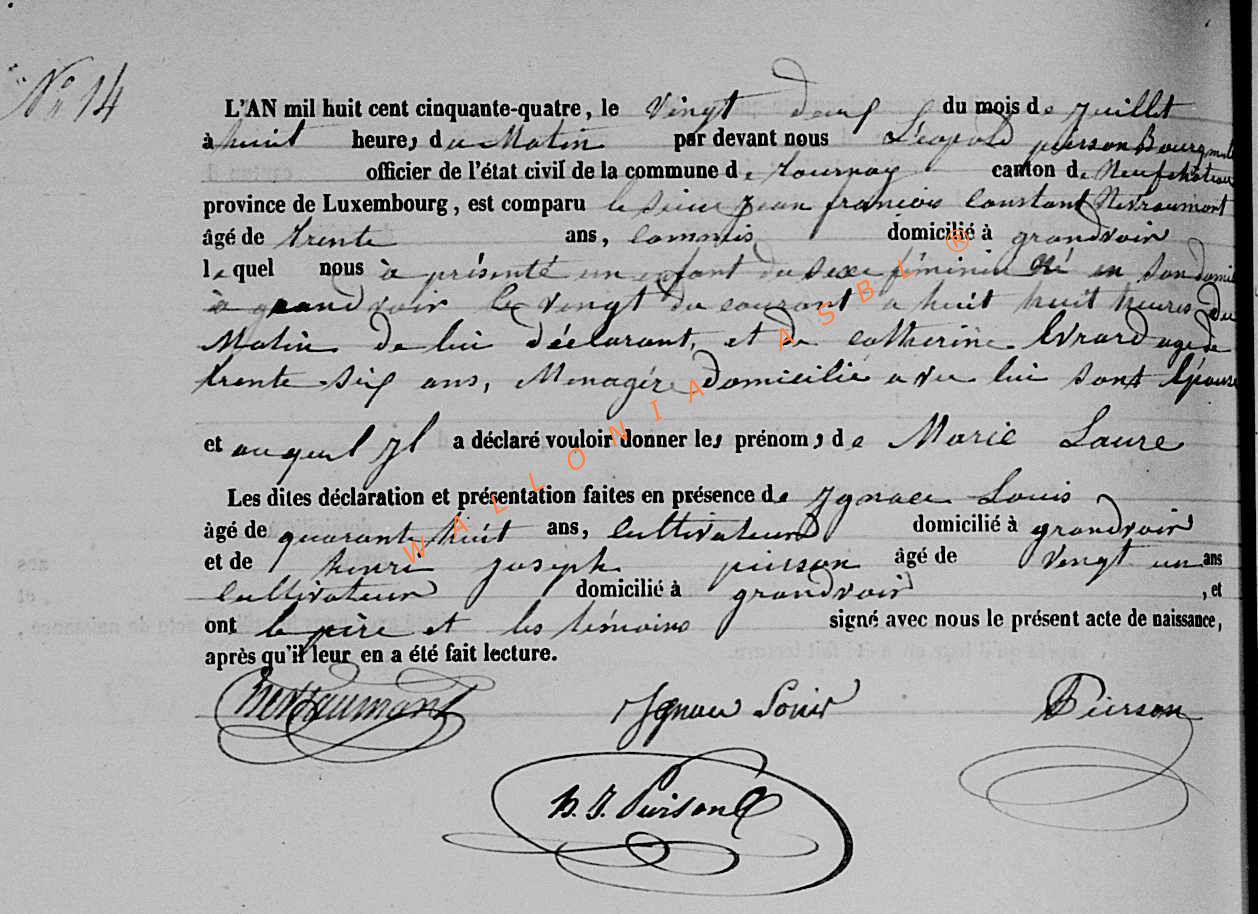 No 14
L'AN mil huit cent cinquante-quatre, le vingt deux du mois de juillet
à huit heures du Matin par devant nous Léopold pierson Bourgmestre
officier de l'état civil de la commune de tournay canton de Neufchateau
province de Luxembourg, est comparu le sieur jean francois Constant Nevraumont
âgé de trente ans, commis domicilié à grandvoir
lequel nous à présenté un enfant du sexe féminin né en son domi
à grandvoir le vingt du courant a huit huit heures du
Matin de lui déclarant, et de catherine Evrard agée de
trente six ans, Menagére domicilié avec lui sont épouse
et auquel il a déclaré vouloir donner les prénoms de Marie Laure
Les dites déclaration et présentation faites en présence de Ignace Louis
âgé de quarante huit ans, cultivateur domicilié à grandvoir
et de henri joseph pierson âgé de vingt un ans
cultivateur domicilié à grandvoir , et
ont le père et les témoins signé avec nous le présent acte de naissance,
après qu'il leur en a été fait lecture.
Nevraumont Ignace Louis Pierson
h. J. Pierson
WALLONIA ASBL ®